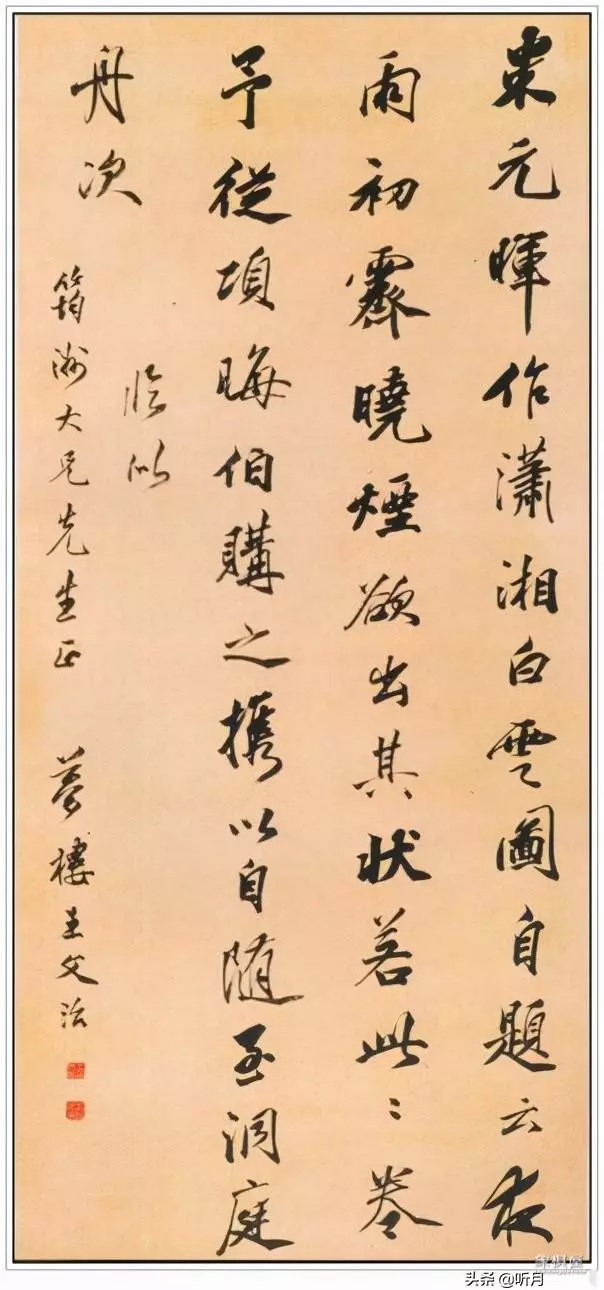 米元暉作瀟湘白雲圖自題云夜
雨初霽曉煙欲出其状若此〻卷
予從項晦伯購之携以自随至洞庭
舟次
臨似
筠洲大兄先生正 夢樓王文治
头条 @听月